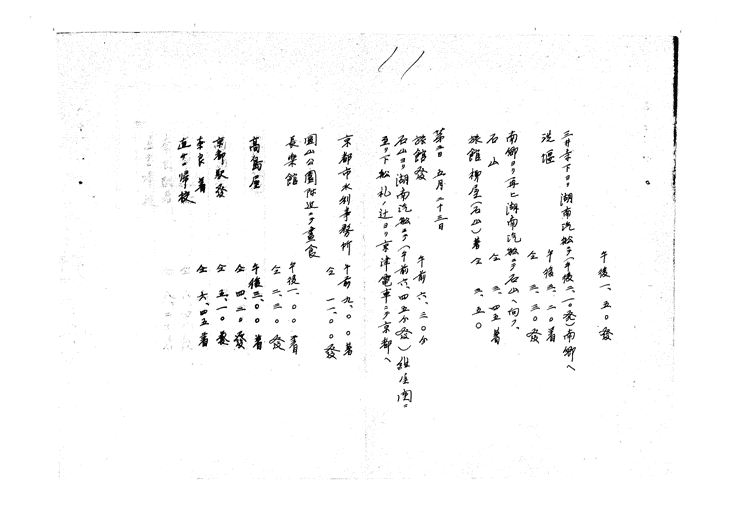 午後一、五〇發
三井寺下ヨリ湖南汽船ニテ(午後二、一〇發)南郷ヘ
洗堰 午後三、二〇着
仝 三、三〇發
南郷ヨリ再ヒ湖南汽船ニテ石山ヘ向フ、
石山 仝 三、四五着
旅館柳屋(石山)着 仝 三、五〇
第二日 五月二十三日
旅館發 午前六、三〇分
石山ヨリ湖南汽船ニテ(午前六、四五分發)
下船札ノ辻ヨリ京津電車ニテ京都ヘ
京都市水利事務所 午前九、〇〇着
仝 一一、〇〇發
圓山公園附近ニテ晝食
長樂館 午後一、〇〇着
仝 二、二〇發
高島屋 午後三、〇〇着
仝 四、二〇發
京都驛發 仝 五、一〇發
奈良着 仝 六、四五着
直チニ帰校